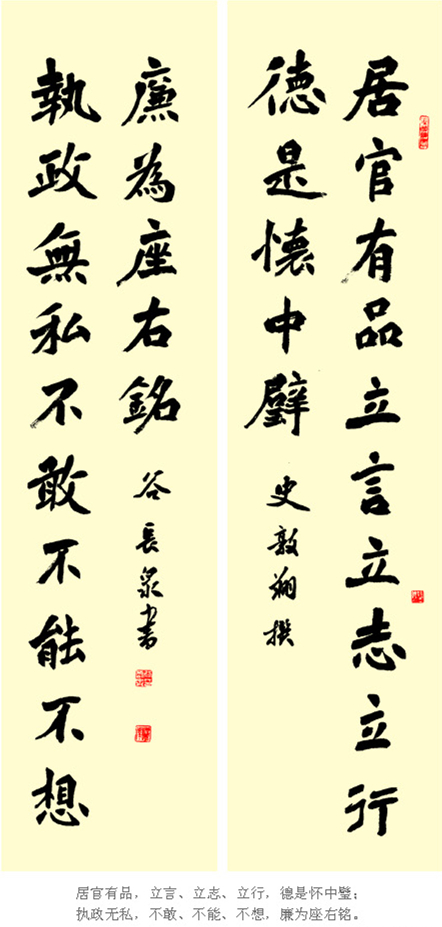 居官有品立言立志立行
德是懷中璧
史敦翔撰
執政無私不敢不能不想
廉為座右銘
谷長泉書
居官有品，立言、立志、立行，德是怀中璧；
执政无私，不敢、不能、不想，廉为座右铭。